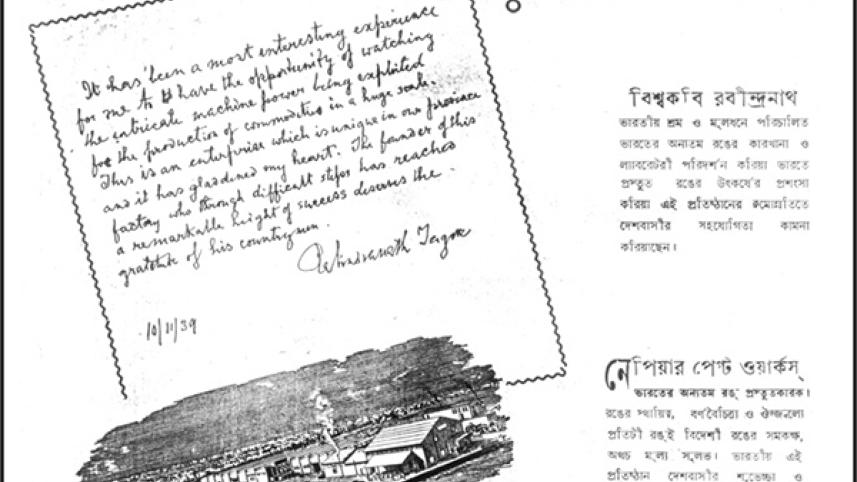 It has been a most interesting experience
for me to have the opportunity of watching
the intricate machine power being exploited
for the production of commodities in a huge scale.
This is an enterprise which is unique in our province
and it has gladdened my heart. The founder of this
factory who through difficult steps has reached
a remarkable height of success deserves the
gratitude of his countrymen.
Rabindranath Tagore
10/11/39
বিশ্বকবি রবীন্দ্রনাথ
ভারতীয় শ্রম ও মূলধনে পরিচালিত
ভারতের অন্যতম রঙের কারখানা ও
ল্যাবরেটরী পরিদর্শন করিয়া ভারতে
প্রস্তুত রঙের উৎকর্ষের প্রশংসা
করিয়া এই প্রতিষ্ঠানের ক্রমোন্নতিতে
দেশবাসীর সহযোগিতা কামনা
করিয়াছেন।
নেপিয়ার পেণ্ট ওয়ার্কস্
ভারতের অন্যতম রঙ্ প্রস্তুতকারক।
রঙের স্থায়িত্ব, বর্ণবৈচিত্র্য ও ঔজ্জ্বল্যে
প্রতিটী রঙ্ই বিদেশী রঙের সমকক্ষ,
অথচ মূল্য সুলভ। ভারতীয় এই
প্রতিষ্ঠান দেশবাসীর শুভেচ্ছা ও